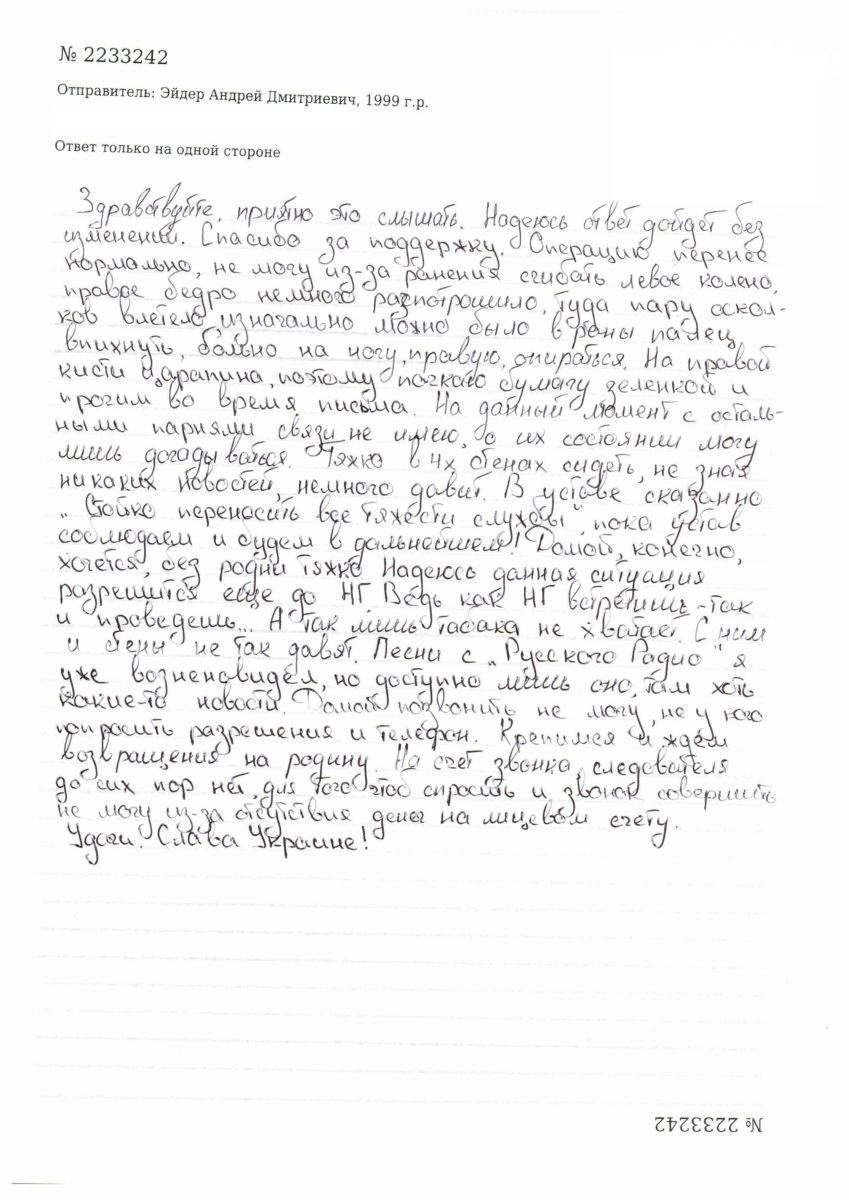 № 2233242
Отправитель: Эйдер Андрей Дмитриевич, 1999 г.р.
Ответ только на одной стороне
Здравствуйте, приятно это слышать. Надеюсь ответ дойдет без
изменений. Спасибо за поддержку. Операцию перенёс
нормально, не могу из-за ранения сгибать левое колено,
правое бедро немного распотрошило, туда пару оскол-
ков влетело, изначально можно было в раны палец
впихнуть, больно на ногу, правую, опираться. На правой
кисти царапина, поэтому пачкаю бумагу зеленкой и
прочим во время письма. На данный момент с осталь-
ными парнями связи не имею, о их состоянии могу
лишь догадываться. Тяжко в 4х стенах сидеть, не зная
никаких новостей, немного давит. В уставе сказанно
„Стойко переносить все тяжести службы", пока устав
соблюдаем и будем в дальнейшем! Домой, конечно,
хочется, без родни тяжко. Надеюсь данная ситуация
разрешится еще до НГ. Ведь как НГ встретишь - так
и проведешь... А так лишь табака не хватает. С ним
и стены не так давят. Песни с „Русского Радио" я
уже возненавидел, но доступно лишь оно, там хоть
какие-то новости. Домой позвонить не могу, не у кого
попросить разрешения и телефон. Крепимся и ждём
возвращения на родину. На счет звонка, следователя
до сих пор нет, для того чтоб спросить и звонок совершить
не могу из-за отсутствия денег на лицевом счету.
Удачи! Слава Украине!
№ 2233242